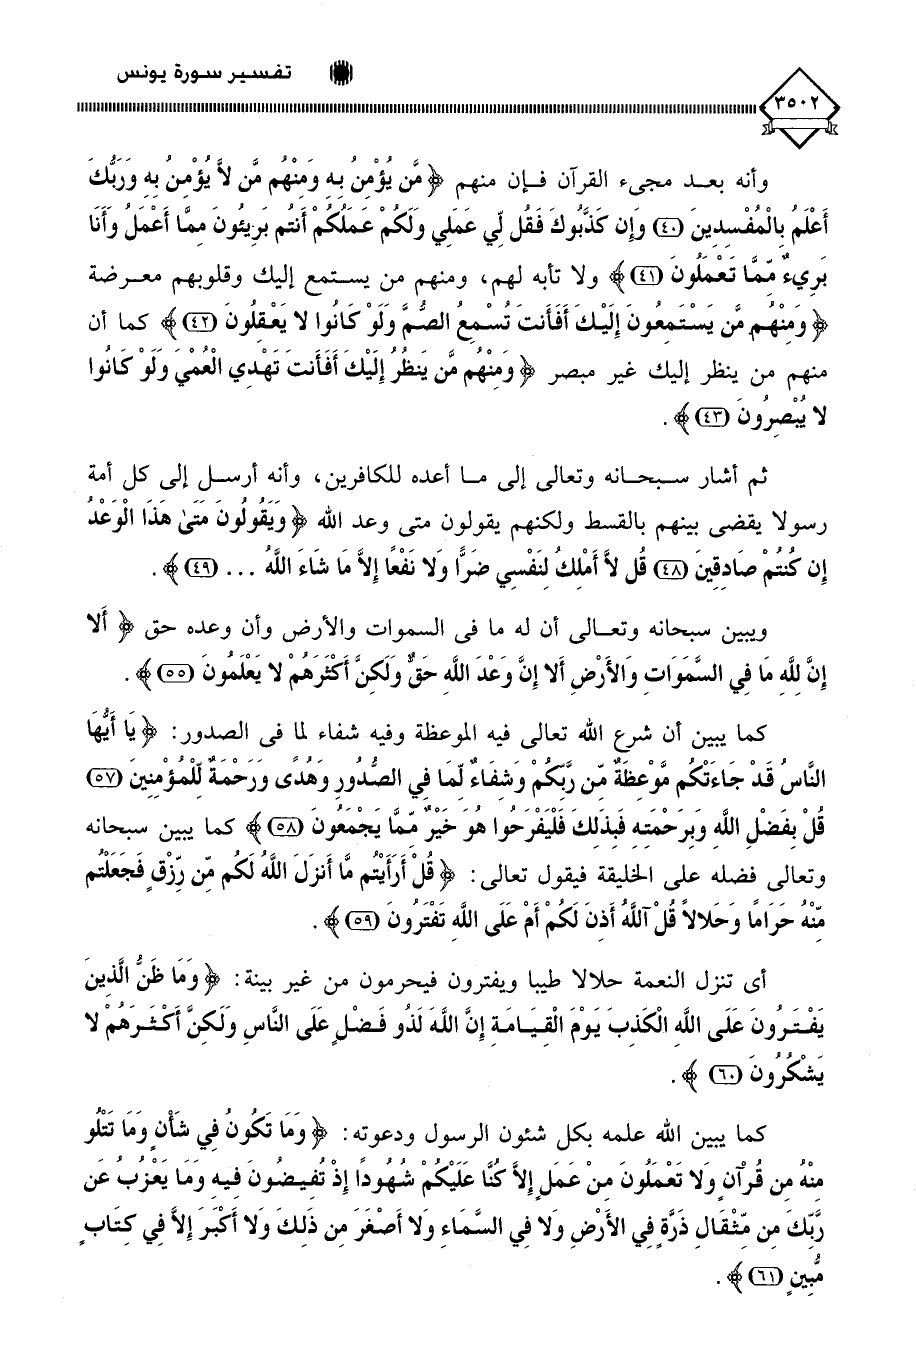 ٣٥٠٢
تفسير سورة يونس
وأنه بعد مجيء القرآن فإن منهم ﴿ مَّن يُؤْمِنُ بِهِ وَمِنْهُم مَّن لاَّ يُؤْمِنُ بِهِ وَرَبُّكَ
أَعْلَمُ بِالْمُفْسِدِينَ (٤٠) وَإِن كَذَّبُوكَ فَقُل لِّي عَمَلِي وَلَكُمْ عَمَلُكُمْ أَنتُم بَرِيئُونَ مِمَّا أَعْمَلُ وَأَنَا
بَرِيءٌ مِّمَّا تَعْمَلُونَ (٤١) ﴾ ولا تأبه لهم، ومنهم من يستمع إليك وقلوبهم معرضة
﴿ وَمِنْهُم مَّن يَسْتَمِعُونَ إِلَيْكَ أَفَأَنتَ تُسْمِعُ الصُّمَّ وَلَوْ كَانُوا لا يَعْقِلُونَ (٤٢) ﴾ كما أن
منهم من ينظر إليك غير مبصر ﴿ وَمِنْهُم مَّن يَنظُرُ إِلَيْكَ أَفَأَنتَ تَهْدِي الْعُمْيَ وَلَوْ كَانُوا
لا يُبْصِرُونَ (٤٣) ﴾ .
ثم أشار سبحانه وتعالى إلى ما أعده للكافرين، وأنه أرسل إلى كل أمة
رسولا يقضى بينهم بالقسط ولكنهم يقولون متى وعد الله ﴿ وَيَقُولُونَ مَتَىٰ هَذَا الْوَعْدُ
إِن كُنتُمْ صَادِقِينَ (٤٨) قُل لاَّ أَمْلِكُ لِنَفْسِي ضَرًّا وَلا نَفْعًا إِلاَّ مَا شَاءَ اللَّهُ ... (٤٩) ﴾ .
ويبين سبحانه وتعالى أن له ما فى السموات والأرض وأن وعده حق ﴿ أَلا
إِنَّ لِلَّهِ مَا فِي السَّمَوَاتِ وَالأَرْضِ أَلا إِنَّ وَعْدَ اللَّهِ حَقٌّ وَلَكِنَّ أَكْثَرَهُمْ لا يَعْلَمُونَ (٥٥) ﴾ .
كما يبين أن شرع الله تعالى فيه الموعظة وفيه شفاء لما فى الصدور: ﴿ يَا أَيُّهَا
النَّاسُ قَدْ جَاءَتْكُم مَّوْعِظَةٌ مِّن رَّبِّكُمْ وَشِفَاءٌ لِّمَا فِي الصُّدُورِ وَهُدًى وَرَحْمَةٌ لِّلْمُؤْمِنِينَ (٥٧)
قُلْ بِفَضْلِ اللَّهِ وَبِرَحْمَتِهِ فَبِذَلِكَ فَلْيَفْرَحُوا هُوَ خَيْرٌ مِّمَّا يَجْمَعُونَ (٥٨) ﴾ كما يبين سبحانه
وتعالى فضله على الخليقة فيقول تعالى: ﴿ قُلْ أَرَأَيْتُم مَّا أَنزَلَ اللَّهُ لَكُم مِّن رِّزْقٍ فَجَعَلْتُم
مِّنْهُ حَرَامًا وَحَلالاً قُلْ آللَّهُ أَذِنَ لَكُمْ أَمْ عَلَى اللَّهِ تَفْتَرُونَ (٥٩) ﴾ .
أى تنزل النعمة حلالا طيبا ويفترون فيحرمون من غير بينة: ﴿ وَمَا ظَنُّ الَّذِينَ
يَفْتَرُونَ عَلَى اللَّهِ الْكَذِبَ يَوْمَ الْقِيَامَةِ إِنَّ اللَّهَ لَذُو فَضْلٍ عَلَى النَّاسِ وَلَكِنَّ أَكْثَرَهُمْ لا
يَشْكُرُونَ (٦٠) ﴾ .
كما يبين الله علمه بكل شئون الرسول ودعوته: ﴿ وَمَا تَكُونُ فِي شَأْنٍ وَمَا تَتْلُو
مِنْهُ مِن قُرْآنٍ وَلا تَعْمَلُونَ مِنْ عَمَلٍ إِلاَّ كُنَّا عَلَيْكُمْ شُهُودًا إِذْ تُفِيضُونَ فِيهِ وَمَا يَعْزُبُ عَن
رَّبِّكَ مِن مِّثْقَالِ ذَرَّةٍ فِي الأَرْضِ وَلا فِي السَّمَاءِ وَلا أَصْغَرَ مِن ذَلِكَ وَلا أَكْبَرَ إِلاَّ فِي كِتَابٍ
مُّبِينٍ (٦١) ﴾ .